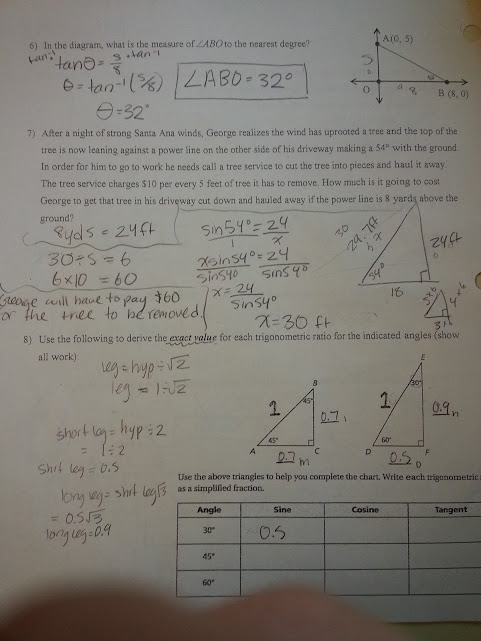 6) In the diagram, what is the measure of ∠ABO to the nearest degree?
tan⁻¹ tanθ = 5/8 · tan⁻¹
θ = tan⁻¹(5/8)
∠ABO = 32°
θ = 32°
A (0, 5)
5
O
8
B (8, 0)
7) After a night of strong Santa Ana winds, George realizes the wind has uprooted a tree and the top of the
tree is now leaning against a power line on the other side of his driveway making a 54° with the ground.
In order for him to go to work he needs call a tree service to cut the tree into pieces and haul it away.
The tree service charges $10 per every 5 feet of tree it has to remove. How much is it going to cost
George to get that tree in his driveway cut down and hauled away if the power line is 8 yards above the
ground?
8yds = 24ft
30÷5 = 6
6x10 = 60
George will have to pay $60
for the tree to be removed
sin54° = 24
1 x
xsin54° = 24
sin54° sin54°
x = 24
sin54°
x = 30 ft
30
29.7ft
h x
24ft
o
54°
18
5ft
4ft
3ft
8) Use the following to derive the exact value for each trigonometric ratio for the indicated angles (show
all work):
leg = hyp ÷ √2
leg = 1÷√2
short leg = hyp ÷ 2
= 1 ÷ 2
shrt leg = 0.5
long leg = shrt leg√3
= 0.5√3
long leg = 0.9
B
1
45°
0.7
45°
A
0.7 m
C
E
30°
1
0.9 n
60°
D
0.5 o
F
Use the above triangles to help you complete the chart. Write each trigonometric
as a simplified fraction.
Angle Sine Cosine Tangent
30° 0.5
45°
60°